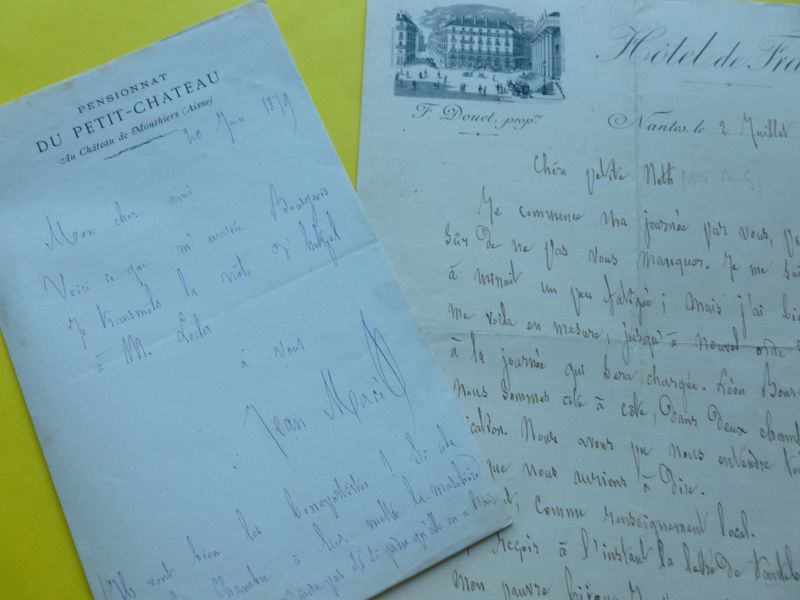 PENSIONNAT
DU PETIT-CHATEAU
Au Château de Monthiers (Aisne)
20 Juin 1879
Mon cher ami
Voici ce que m'envoie Bourgeois
Je transmets la note d'Hetzel
à M.
à vous
Jean Macé
Ils vont bien les bonapartistes ! Si cela
la Chambre à leur mettre la muselière
Hôtel de Fra
F. Douet, propre
Nantes, le 2 Juillet
Chère petite Neth
Je commence ma journée par vous, p
sûr de ne pas vous manquer. Je me su
à minuit un peu fatigué ; mais j'ai bie
me voilà en mesure, jusqu'à nouvel ordre
à la journée qui sera chargée. Léon Bour
Nous sommes côte à côte, dans deux chamb
cation. Nous avons pu nous entendre
que nous aurions à dire.
comme renseignement local.
reçois à l'instant la lettre de
mon pauvre